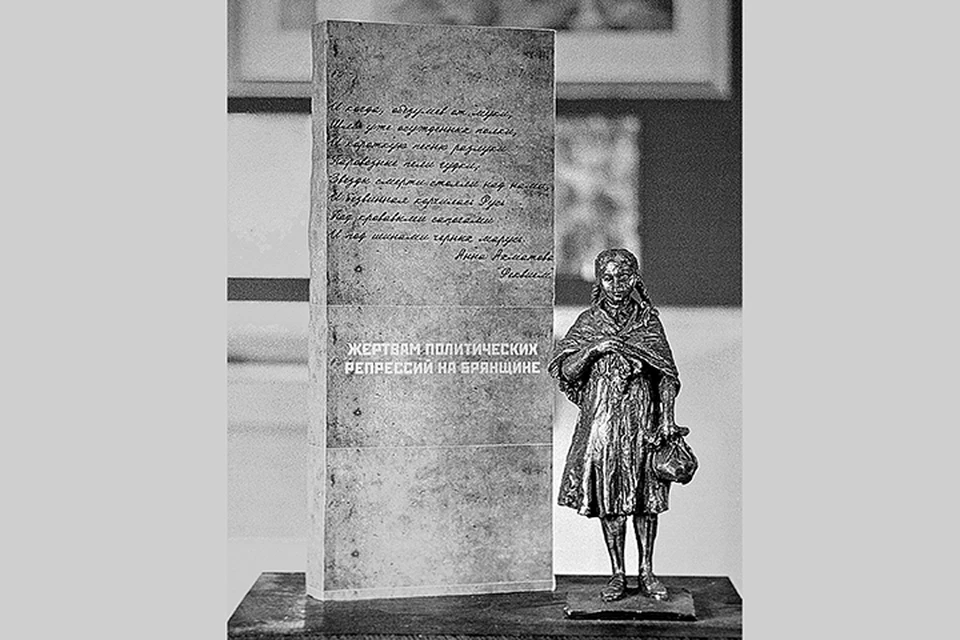 И когда, обезумев от муки,
Шли уже осужденных полки,
И короткую песню разлуки
Паровозные пели гудки,
Звезды смерти стояли над нами,
И безвинная корчилась Русь
Под кровавыми сапогами
И под шинами черных марусь.
Анна Ахматова
Реквием
ЖЕРТВАМ ПОЛИТИЧЕСКИХ
РЕПРЕССИЙ НА БРЯНЩИНЕ